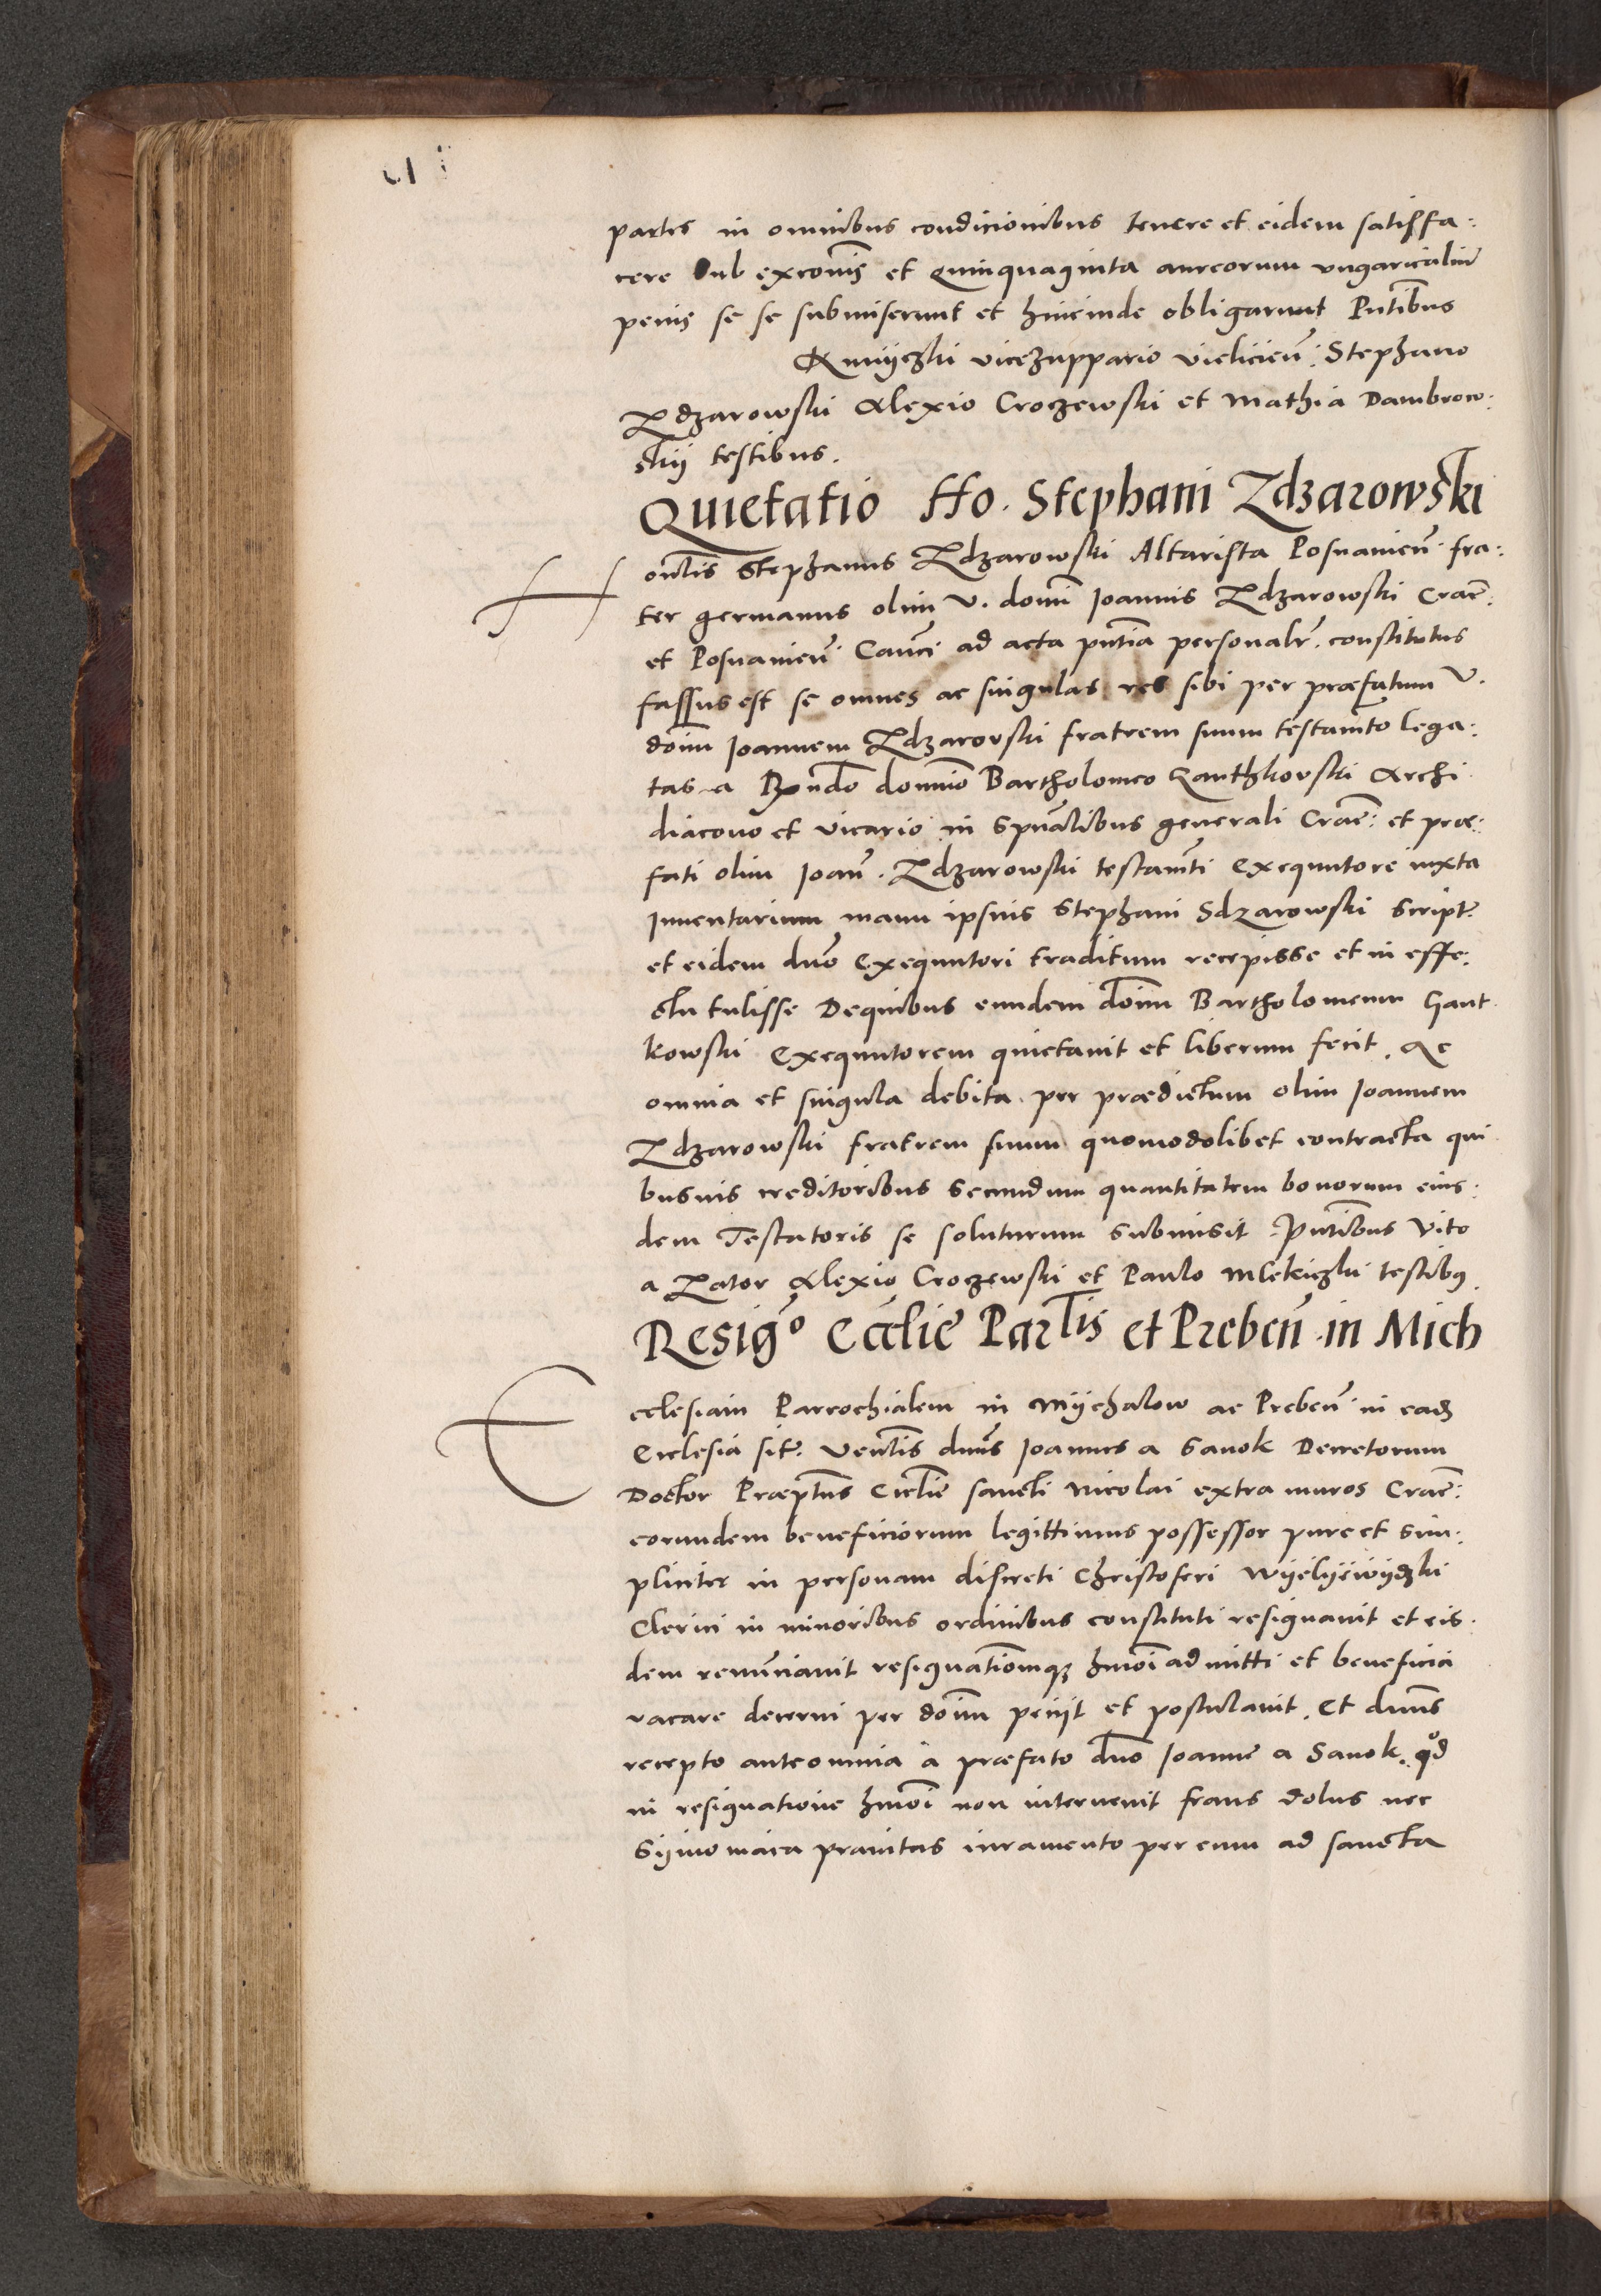 partes in omnibus condicionibus tenere et eidem satisfa:
cere Sub excoĩs et Quinquaginta aureorum ungaricaliũ
penis se se submiserunt et hincinde obligarunt Pñtibus
Kmyczki vicezuppario vielicieñ: Stephano
Zdzarowski Alexio Croczewski et Mathia Dambrow:
skij testibus.
Quietatio Ho. Stephani Zdzarowski
Honlis Stephanus Zdzarowski Altarista Posnanieñ: fra:
ter germanus olim V. domĩ Ioannis Zdzarowski Crac̃:
et Posnanieñ Cañci ad acta pñtia personalr̃. constitutus
fassus est se omnes ac singulas res sibi per præfatum V.
dom̃ Ioannem Zdzarovski fratrem suum testam̃to lega:
tas a Rndo domino Bartholomeo Ganthkovski Archi
diacono et vicario in Spũalibus generali Crac̃: et præ:
fati olim Ioañ. Zdzarowski testam̃ti Exequutore iuxta
Inuentarium manu ipsius Stephani Sdzarowski Script:
et eidem dño Exequutori traditum recepisse et in effe:
ctu tulisse Dequibus eundem dom̃ Bartholomeum Gant
kowski Exequutorem quietauit et liberum fecit. Ac
omnia et singula debita per prædictum olim Ioannem
Zdzarowski fratrem suum quomodolibet contracta qui
busuis creditoribus Secundum quantitatem bonorum eius:
dem Testatoris se soluturum Submisit. Pñtibus Vito
a Zator Alexio Croczewski et Paulo Mlekiczki testibꝰ.
Resigõ Ecc̃lie Parlis et Prebeñ in Mich
Ecclesiam Parrochialem in Mychalow ac Prebeñ in eadẽ
Ecclesia sit: Venlis dñus Ioannes a Sanok Decretorum
Doctor Præptus Ecc̃lie sancti Nicolai extra muros Crac̃:
eorundem beneficiorum legittimus possessor pure et sim:
pliciter in personam discreti Christoferi Wyelyewyczki
Clerici in minoribus ordinibus constituti resignauit et eis:
dem renunciauit resignationemq; hmõi admitti et beneficia
vacare decerni per dom̃ petijt et postulauit. Et dñus
recepto anteomnia à præfato dño Ioanne a Sanok. qd
in resignatione hmõi non interuenit fraus dolus nec
Symoniaca prauitas iuramento per eum ad sancta